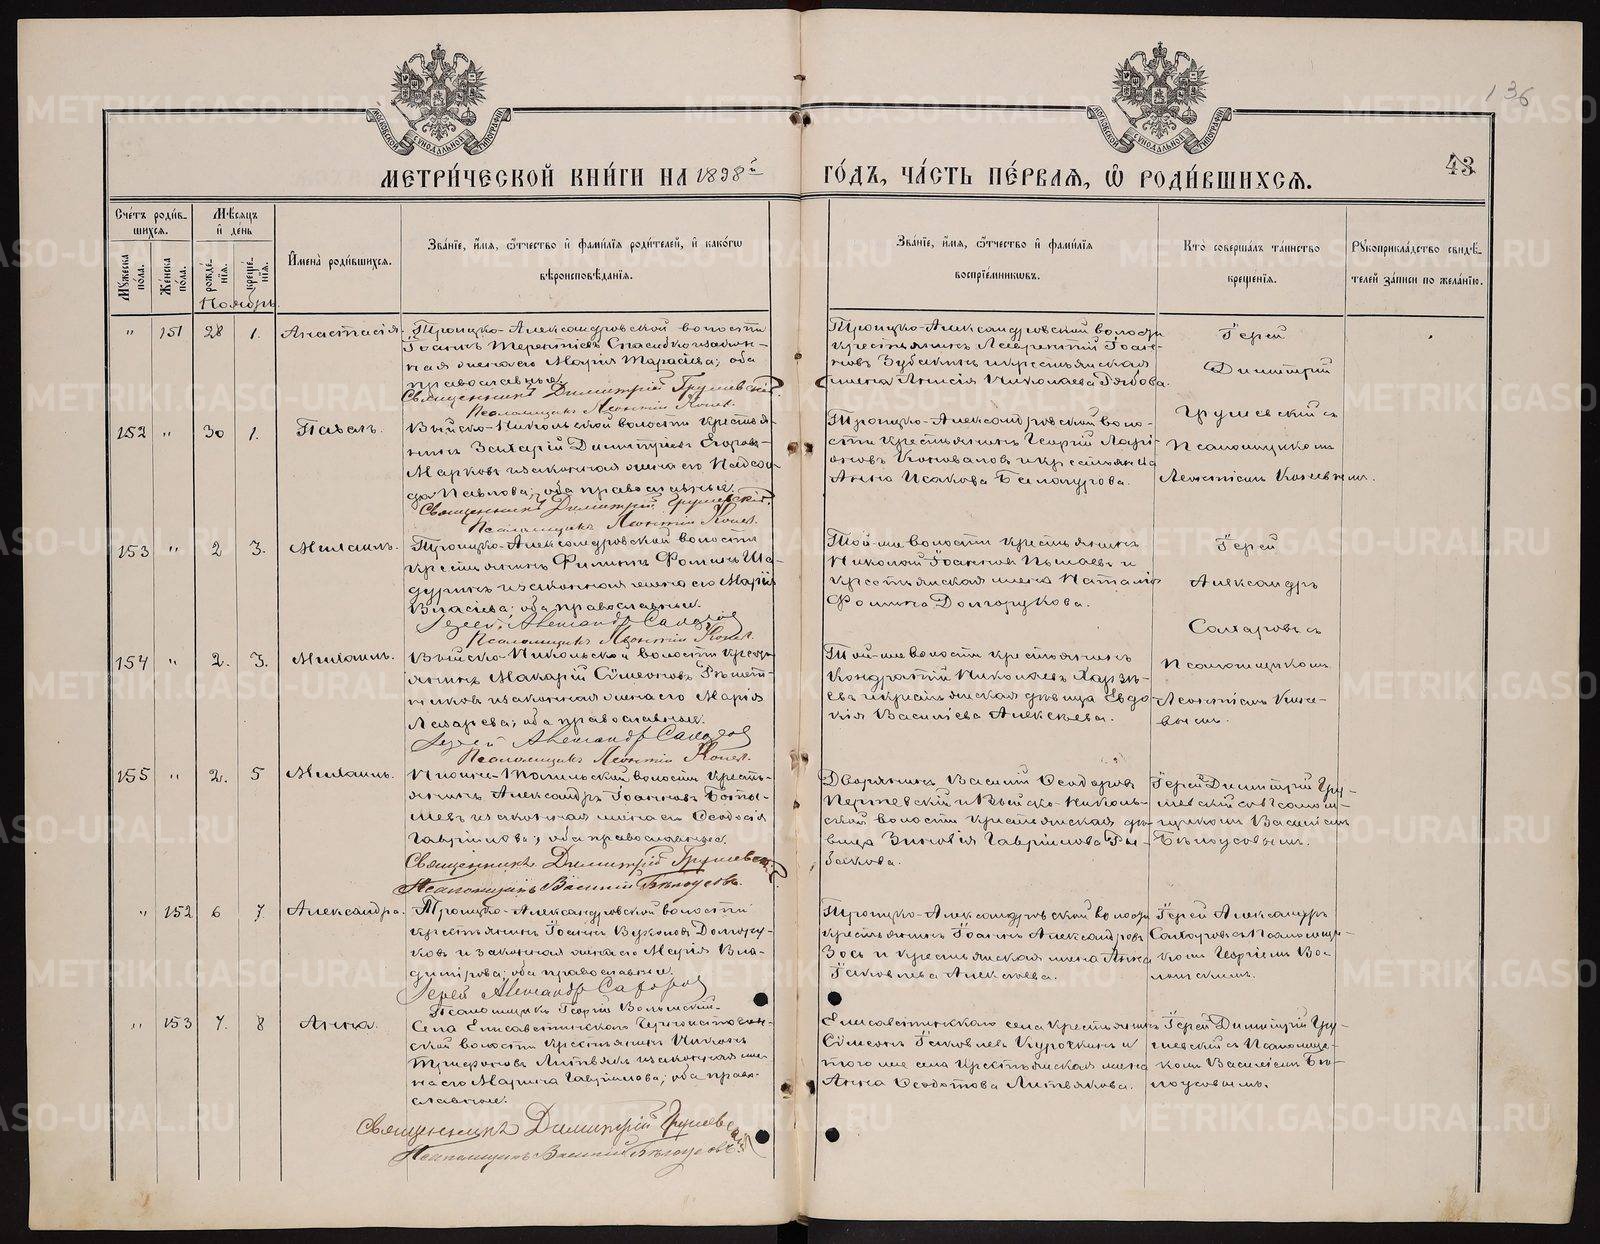 136
МОСКОВСКОЙ СѴНОДАЛЬНОЙ ТИПОГРАФІИ
МОСКОВСКОЙ СѴНОДАЛЬНОЙ ТИПОГРАФІИ
МЕТРИ́ЧЕСКОЙ КНИ́ГИ НА 1898й ГО́ДЪ, ЧА́СТЬ ПЕ́РВАЯ, Ѽ РОДИ́ВШИХСЯ.
43
Сче́тъ роди́в-
шихся.
Мꙋ́жеска по́ла.
Же́нска по́ла.
Мѣ́сяцъ и́ де́нь
рожде́нїя.
креще́нїя.
И҆мена̀ роди́вшихся.
Зва́нїе, и҆́мя, ѻ҆́тчество и҆ фами́лїя роди́телей, и҆ како́гѡ
вѣроисповѣ́данїя.
Зва́нїе, и҆́мя, ѻ҆́тчество и҆ фами́лїя
воспрїе́мникѡвъ.
Кто̀ соверша́лъ та́инство
креще́нїя.
Рꙋкоприкла́дство свидѣ́-
телей за́писи по жела́нїю.
Ноябрь.
" 151 28 1. Анастасія.
Троицко-Александровской волости
Іоаннъ Терентіевъ и закон-
ная жена его Марія Тарасіева; оба
православные.
Священникъ Димитрій Грушевскій.
Псаломщикъ Леонтій
Троицко-Александровской волости
крестьянинъ Лаврентій Іоан-
новъ Зубакинъ и крестьянская
жена Анисія Николаева Рябова.
Іерей
Димитрій
Грушевскій съ
псаломщикомъ
Леонтіемъ
152 " 30 1. Павелъ.
Выйско-Никольской волости крестья-
нинъ Захарій Димитріевъ
Марковъ и законная жена его
Павлова; оба православные.
Священникъ Димитрій Грушевскій.
Псаломщикъ Леонтій
Троицко-Александровской воло-
сти крестьянинъ Георгій Лари-
оновъ Коноваловъ и крестьянка
Анна Исакова Балопугова.
153 " 2 3. Михаилъ.
Троицко-Александровской волости
крестьянинъ Филиппъ Фоминъ Ша-
дринъ и законная жена его Марія
Власіева; оба православные.
Іерей Александръ Сахаровъ
Псаломщикъ Леонтій
Той-же волости крестьянинъ
Николай Іоанновъ и
крестьянская жена Наталія
Фомина Долгорукова.
Іерей
Александръ
Сахаровъ съ
псаломщикомъ
Леонтіемъ
154 " 2. 3. Михаилъ.
Выйско-Никольской волости кресть-
янинъ Макарій Сѵмеоновъ Рѣшет-
никовъ и законная жена его Марія
Лазарева; оба православные.
Іерей Александръ Сахаровъ
Псаломщикъ Леонтій
Той-же волости крестьянинъ
Кондратій Николаевъ
и крестьянская дѣвица Евдо-
кія Василіева Алексѣева.
155 " 2. 5 Михаилъ.
Нижне-Тагильской волости кресть-
янинъ Александръ Іоанновъ
и законная жена его Ѳеодосія
Гавріилова; оба православные.
Священникъ Димитрій Грушевскій.
Псаломщикъ Василій Бѣлоусовъ.
Дворянинъ Василій Ѳеодоровъ
и Выйско-Николь-
ской волости крестьянская дѣ-
вица Зиновія Гавріилова Ры-
бакова.
Іерей Димитрій Гру-
шевскій со псалом-
щикомъ Василіемъ
Бѣлоусовымъ.
" 152 6 7. Александра.
Троицко-Александровской волости
крестьянинъ Іоаннъ Вуколовъ Долгору-
ковъ и законная жена его Марія Вла-
димірова; оба православные.
Іерей Александръ Сахаровъ
Псаломщикъ Георгій Волынскій.
Троицко-Александровской волости
крестьянинъ Іоаннъ Александровъ
Зось и крестьянская жена Анна
Іаковлева Алексѣева.
Іерей Александръ
Сахаровъ съ псаломщи-
комъ Георгіемъ Во-
лынскимъ.
" 153 7. 8 Анна.
Села Елисаветинскаго Черноисточин-
ской волости крестьянинъ Никонъ
Трифоновъ Литвякъ и законная же-
на его Марина Гавріилова; оба право-
славные.
Священникъ Димитрій Грушевскій
Псаломщикъ Василій Бѣлоусовъ
Елисаветинскаго села крестьянинъ
Сѵмеонъ Іаковлевъ Курочкинъ и
того же села крестьянская жена
Анна Ѳеодотова Литвякова.
Іерей Димитрій Гру-
шевскій съ псаломщи-
комъ Василіемъ Бѣ-
лоусовымъ.
METRIKI.GASO-URAL.RU